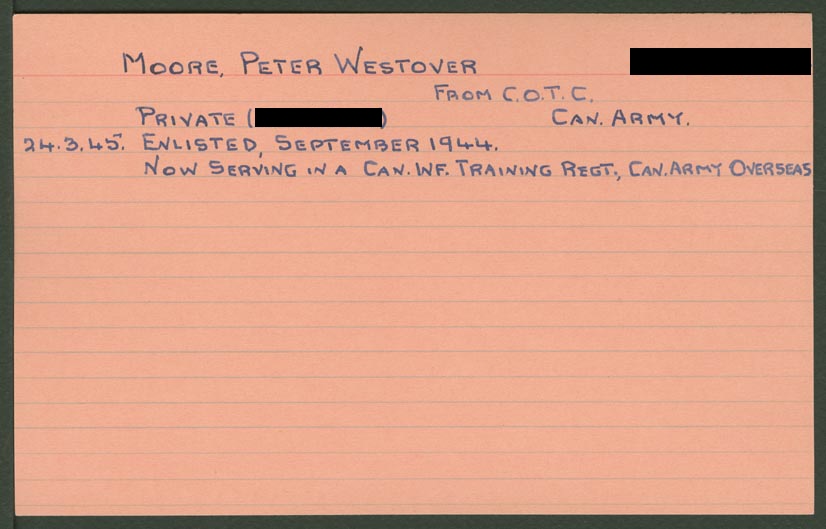 MOORE, PETER WESTOVER
FROM C.O.T.C.
PRIVATE ( ) CAN. ARMY.
24.3.45. ENLISTED, SEPTEMBER 1944.
NOW SERVING IN A CAN. INF. TRAINING REGT., CAN. ARMY OVERSEAS